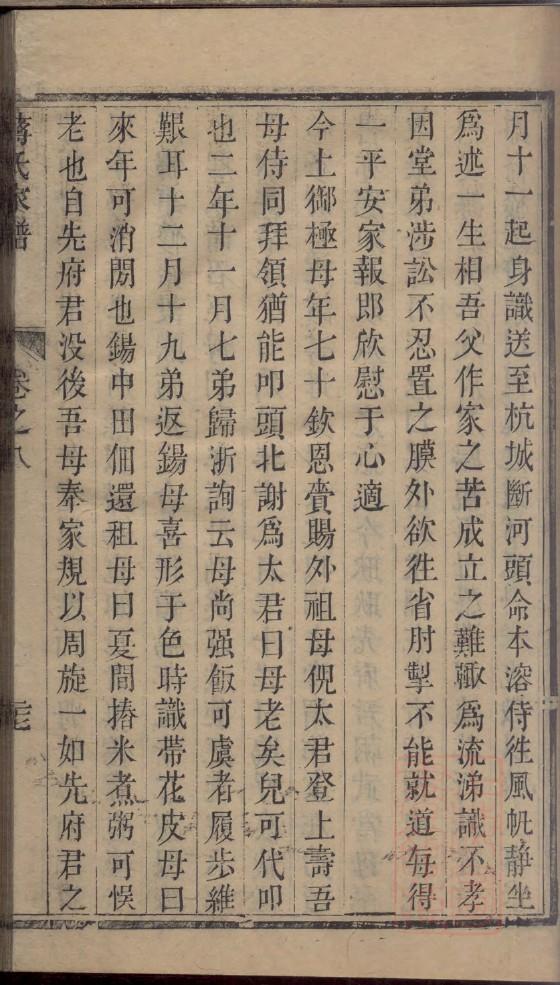 月十一起身識送至杭城斷河頭命本溶侍徃風帆靜坐
爲述一生相吾父作家之苦成立之難輙爲流涕識不孝
因堂弟涉訟不忍置之膜外欲徃省肘掣不能就道每得
一平安家報卽欣慰于心適
今上御極母年七十欽恩賚賜外祖母倪太君登上壽吾
母侍同拜領猶能叩頭北謝爲太君曰母老矣兒可代叩
也二年十一月七弟歸浙詢云母尚强飯可虞者履步維
艱耳十二月十九弟返鍚母喜形于色時識帶花皮母曰
來年可消閱也鍚中田佃還租母曰夏間摏米煮粥可悞
老也自先府君没後吾母奉家規以周旋一如先府君之
蔣氏家譜 卷之八